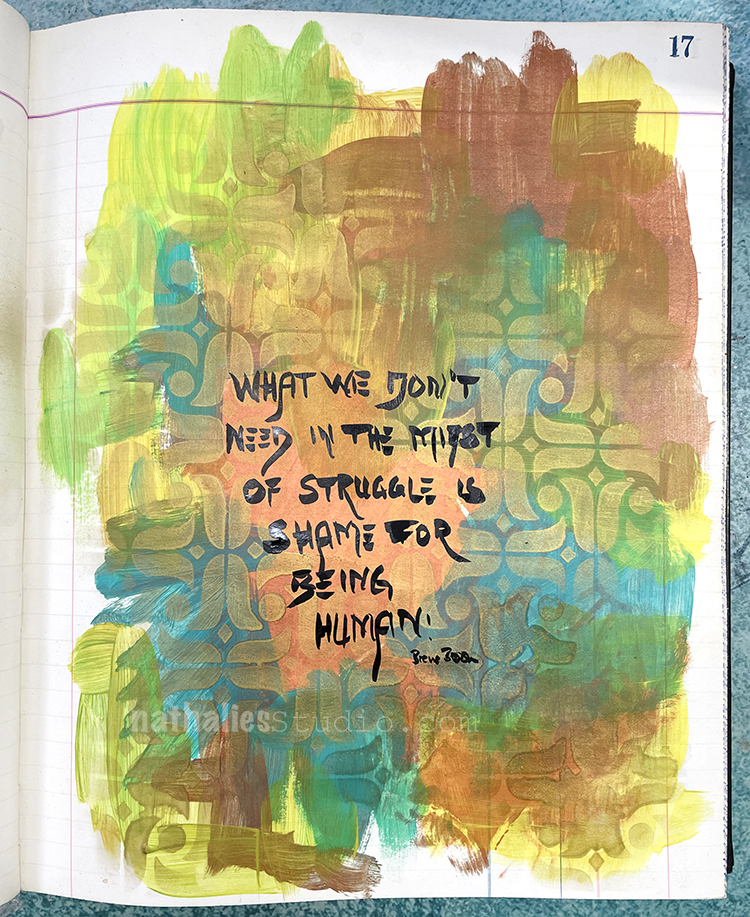 17
WHAT WE DON'T
NEED IN THE MIDST
OF STRUGGLE IS
SHAME FOR
BEING
HUMAN!
nathaliesstudio.com